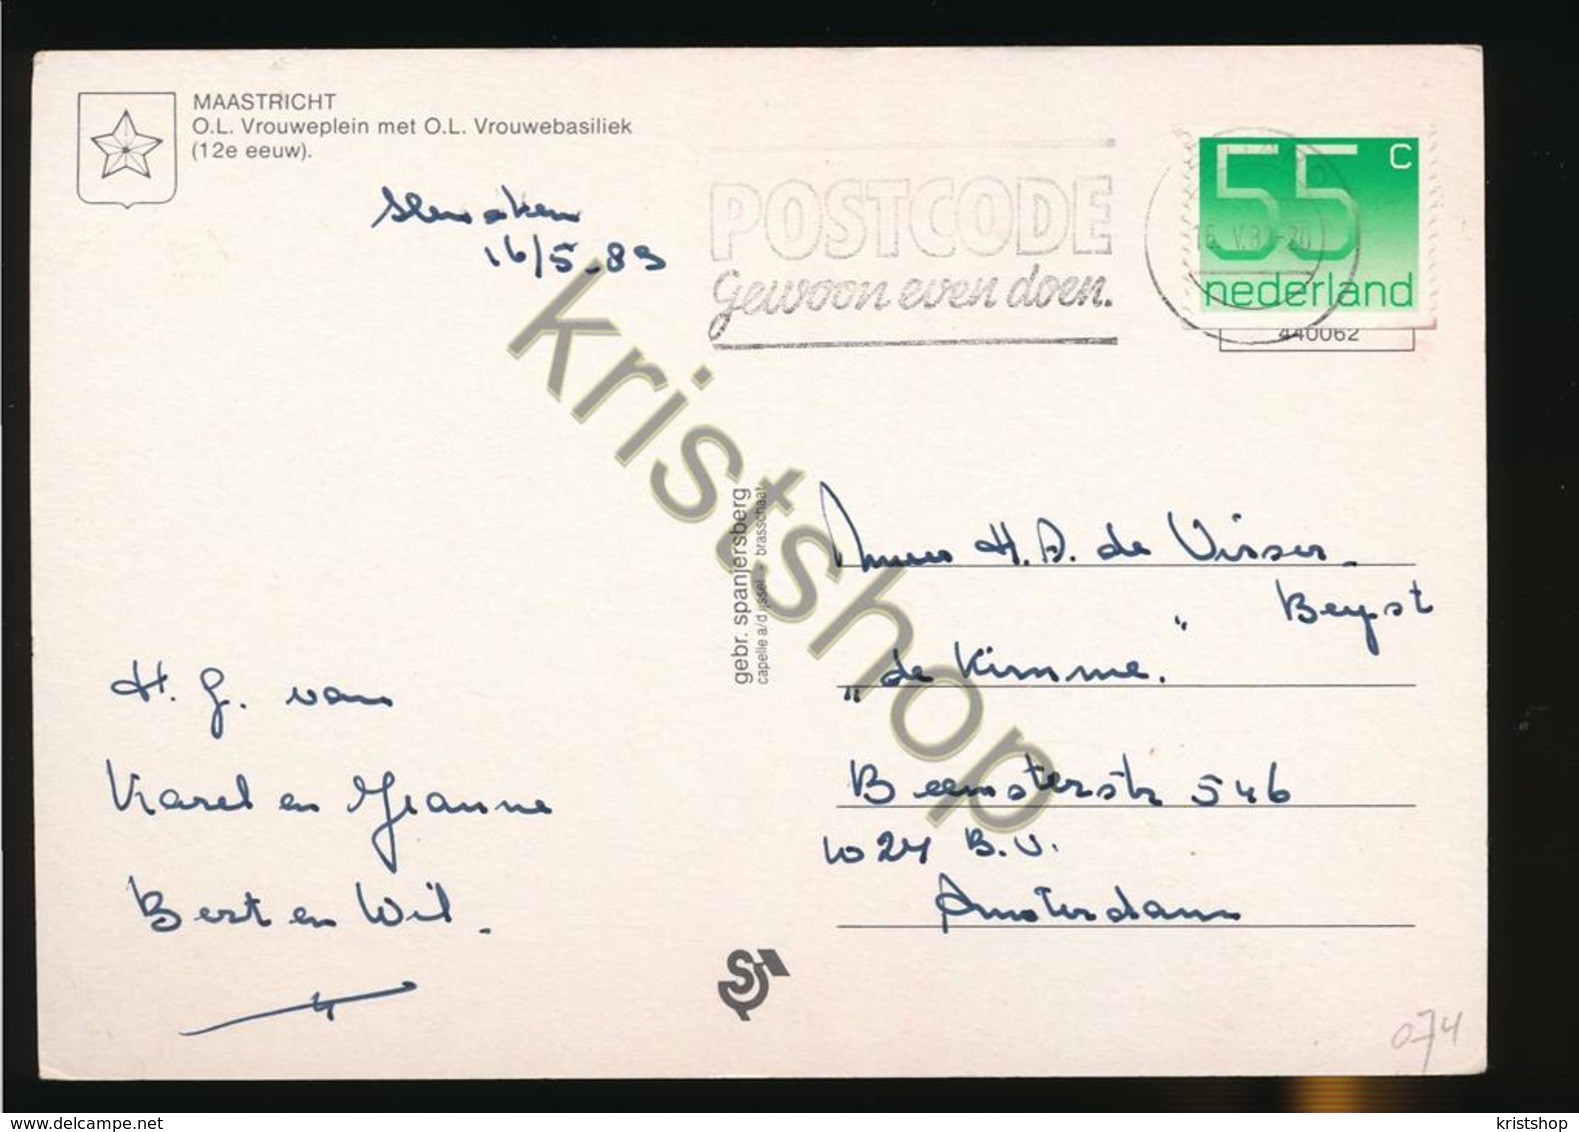 MAASTRICHT
O.L. Vrouweplein met O.L. Vrouwebasiliek
(12e eeuw).
16/5-83
POSTCODE
gewoon even doen.
55 c
nederland
440062
gebr. spanjersberg
capelle a/d ijssel - brasschaat
H. D. de Visser -
Beyst
"de Kimme."
Beemsterstr 546
1024 B.V.
Amsterdam
H. G. van
Karel en Jeanne
Bert en Wil.
074
kristshop
www.delcampe.net
kristshop